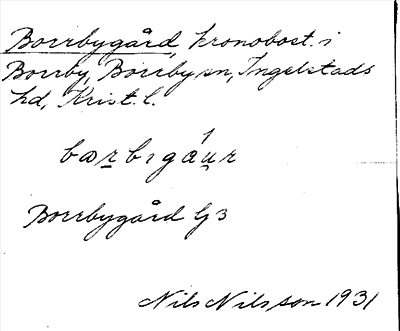 Borrbygård, kronobost. i
Borrby, Borrby sn, Ingelstads
hd, Krist. l.
Borrbygård G 3
Nils Nilsson 1931